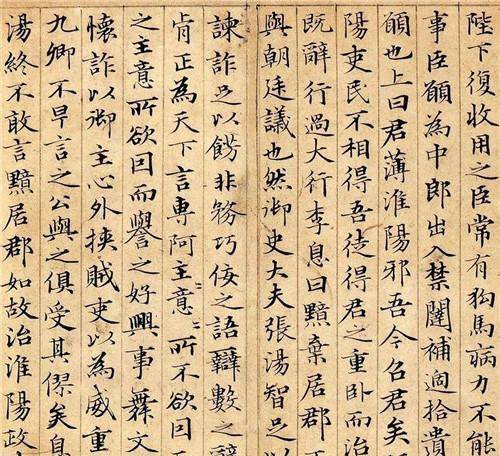 陛下復收用之臣常有狗馬病力不能
事臣願為中郎出入禁闥補過拾遺
願也上曰君薄淮陽邪吾今召君矣
陽吏民不相得吾徒得君之重卧而治
既辭行過大行李息曰黯棄居郡
與朝廷議也然御史大夫張湯智足以
諫詐足以飾非務巧佞之語辯數之辭
肯正為天下言專阿主意〻所不欲因
之主意所欲因而譽之好興事舞文
懷詐以御主心外挾賊吏以為威重
九卿不早言之公與之俱受其僇矣息
湯終不敢言黯居郡如故治淮陽政